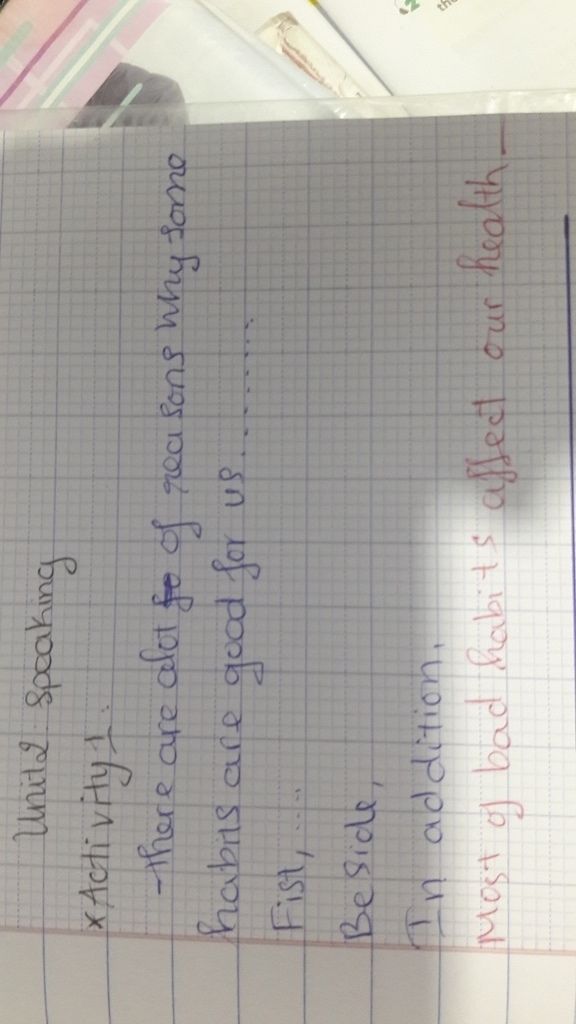 Unit2 speaking
x Activity 1.
- there are alot of reasons why some
habits are good for us.........
Fist,....
Beside,
In addition,
Most of bad habits affect our health.
2
the